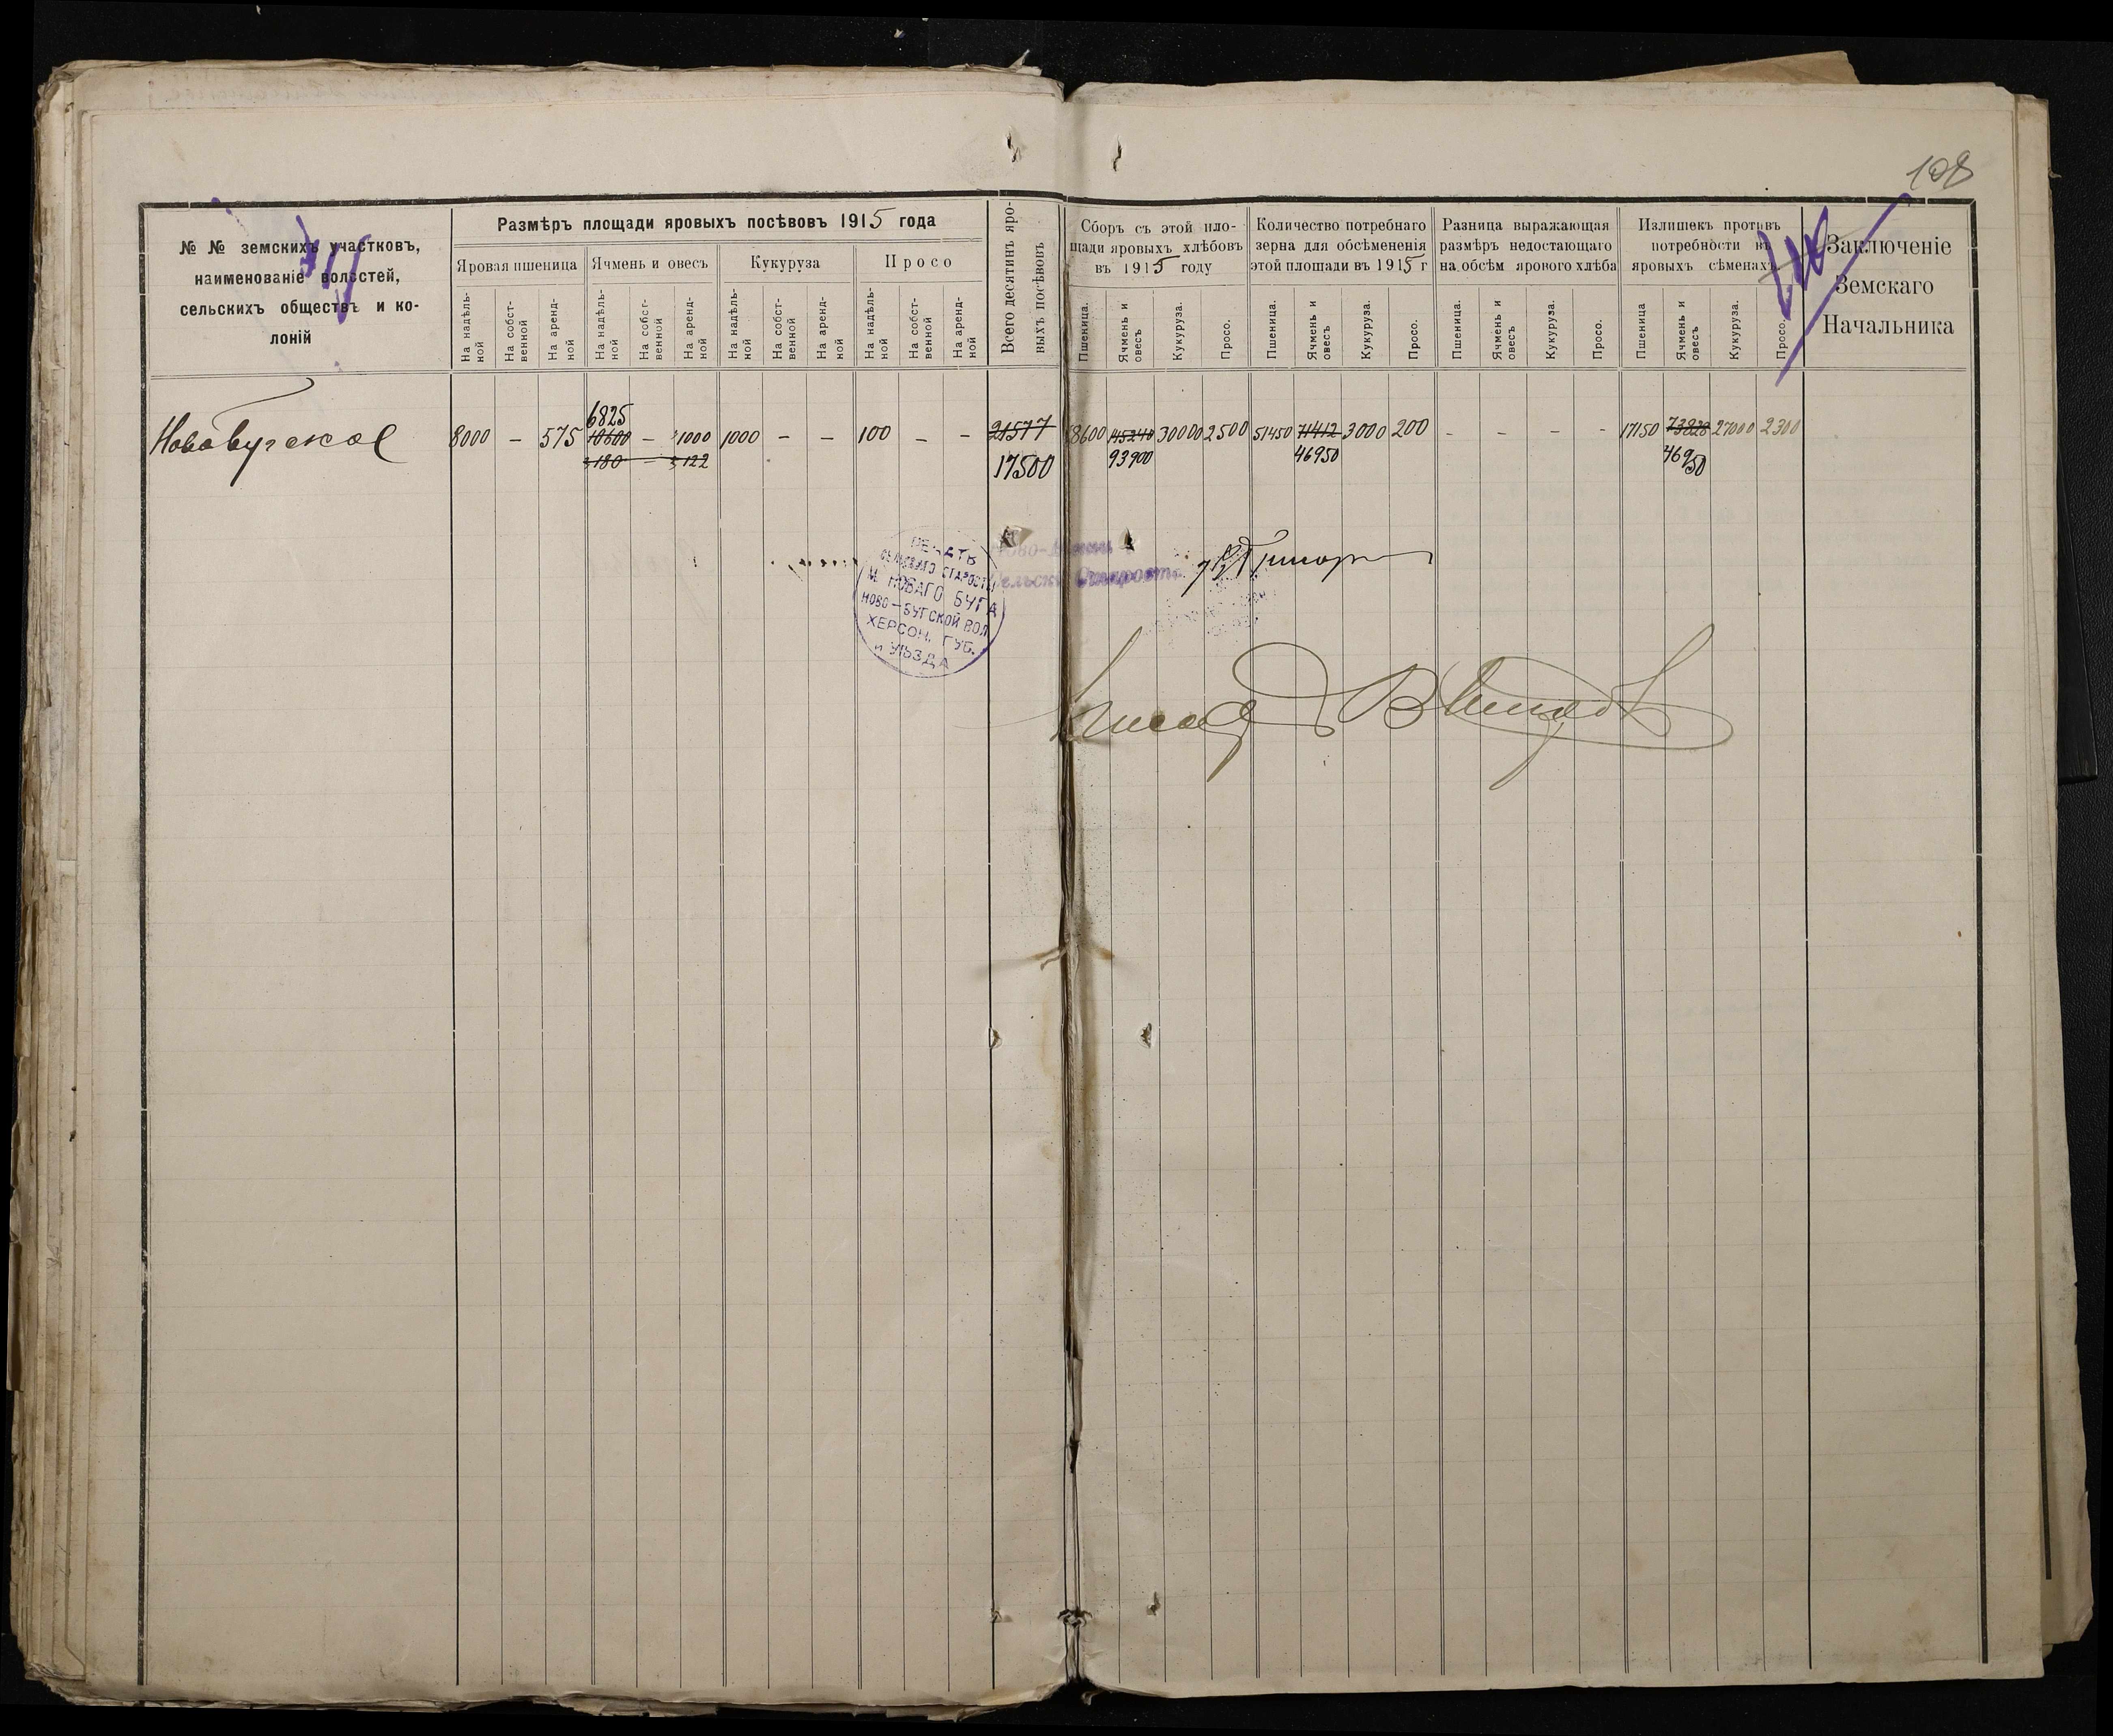 108
№ № земскихъ участковъ,
наименованіе волостей,
сельскихъ обществъ и ко-
лоній
Размѣръ площади яровыхъ посѣвовъ 1915 года
Яровая пшеница
Ячмень и овесъ
Кукуруза
Просо
На надѣль-
ной
На собст-
венной
На аренд-
ной
На надѣль-
ной
На собст-
венной
На аренд-
ной
На надѣль-
ной
На собст-
венной
На аренд-
ной
На надѣль-
ной
На собст-
венной
На аренд-
ной
Всего десятинъ яро-
выхъ посѣвовъ
Сборъ съ этой пло-
щади яровыхъ хлѣбовъ
въ 1915 году
Пшеница.
Ячмень и
овесъ
Кукуруза.
Просо.
Количество потребнаго
зерна для обсѣмененія
этой площади въ 1915 г
Пшеница.
Ячмень и
овесъ
Кукуруза.
Просо.
Разница выражающая
размѣръ недостающаго
на обсѣм ярового хлѣба
Пшеница.
Ячмень и
овесъ
Кукуруза.
Просо.
Излишекъ противъ
потребности въ
яровыхъ сѣменахъ
Пшеница
Ячмень и
овесъ
Кукуруза.
Просо.
Заключеніе
Земскаго
Начальника
6825
Новобугское 8000 – 575 10600 – 1000 1000 – – 100 – – 21577 68600 145240 30000 2500 51450 71412 3000 200 – – – – 17150 73828 27000 2300
3180 – 3122 17500 93900 46950 46950
ПЕЧАТЬ
СЕЛЬСКАГО СТАРОСТЫ
М. НОВАГО БУГА
НОВО-БУГСКОЙ ВОЛ.
ХЕРСОН. ГУБ.
и УѢЗДА
Ново-
Сельскій Староста